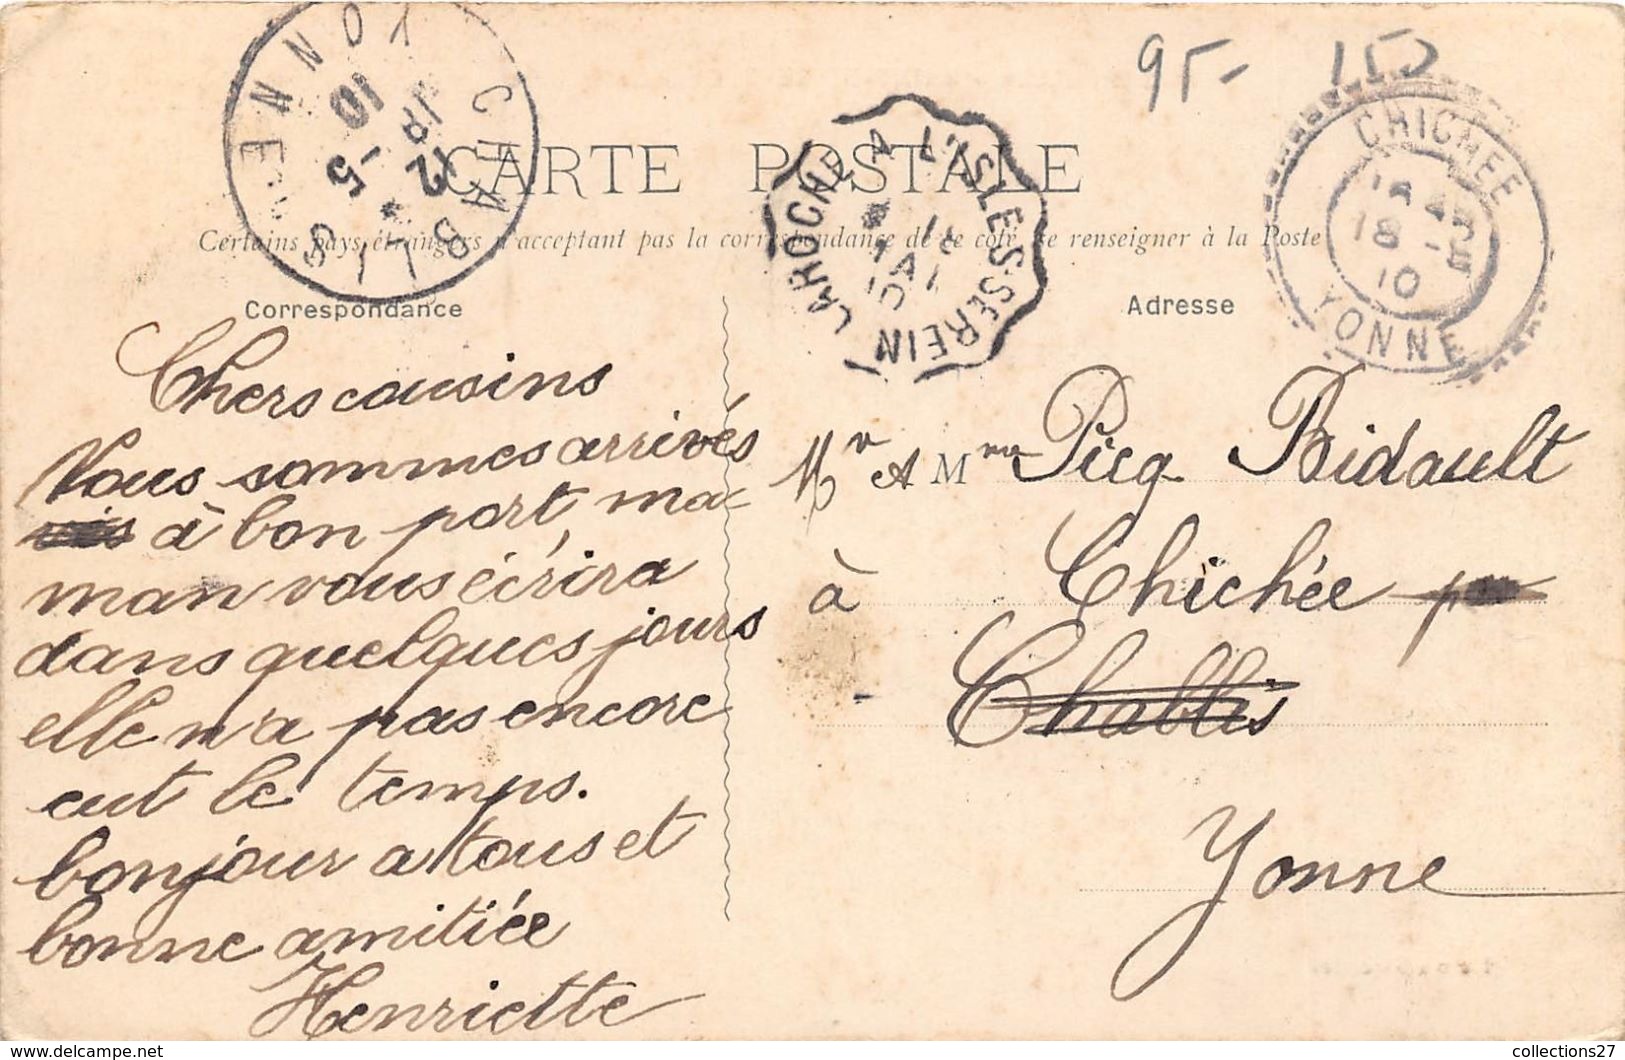 95-
CHABLIS YONNE
10 -5
12
LAROCHE A L'ISLE-S-SEREIN
CHICHEE
18 -5
10
YONNE
CARTE POSTALE
Certains pays étrangers n'acceptant pas la correspondance de ce côté, se renseigner à la Poste
Correspondance
Adresse
Chers cousins
Nous sommes arrivés
à bon port, ma-
man vous écrira
dans quelques jours
elle n'a pas encore
eut le temps.
bonjour a tous et
bonne amitiée
Henriette
Mr A Mme Picq Bidault
à Chichée
Chablis
Yonne
collections27